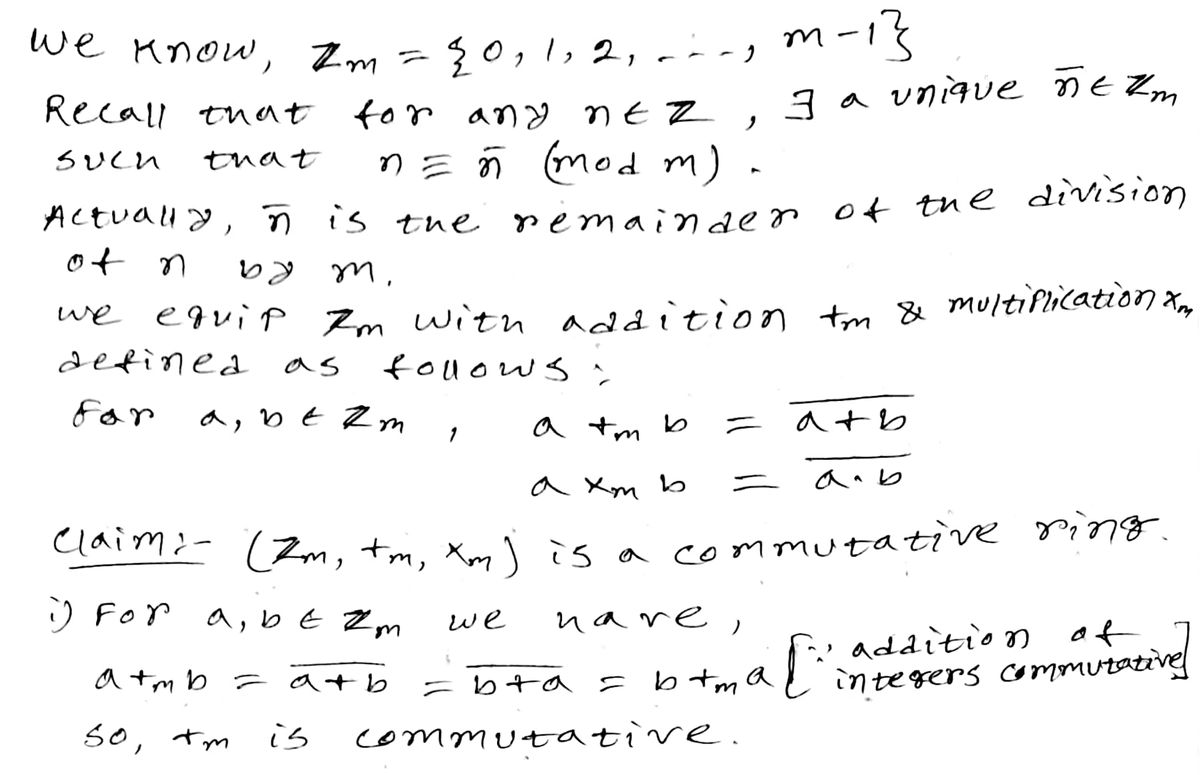 We know, Zm = {0, 1, 2, ----, m-1}
Recall that for any n ∈ Z, ∃ a unique n̄ ∈ Zm
such that n ≡ n̄ (mod m).
Actually, n̄ is the remainder of the division
of n by m.
we equip Zm with addition +m & multiplication ×m
defined as follows:
for a, b ∈ Zm, a +m b = \overline{a+b}
a ×m b = \overline{a·b}
Claim:- (Zm, +m, ×m) is a commutative ring.
i) For a, b ∈ Zm we have,
a +m b = \overline{a+b} = \overline{b+a} = b +m a [∵ addition of integers commutative]
so, +m is commutative.